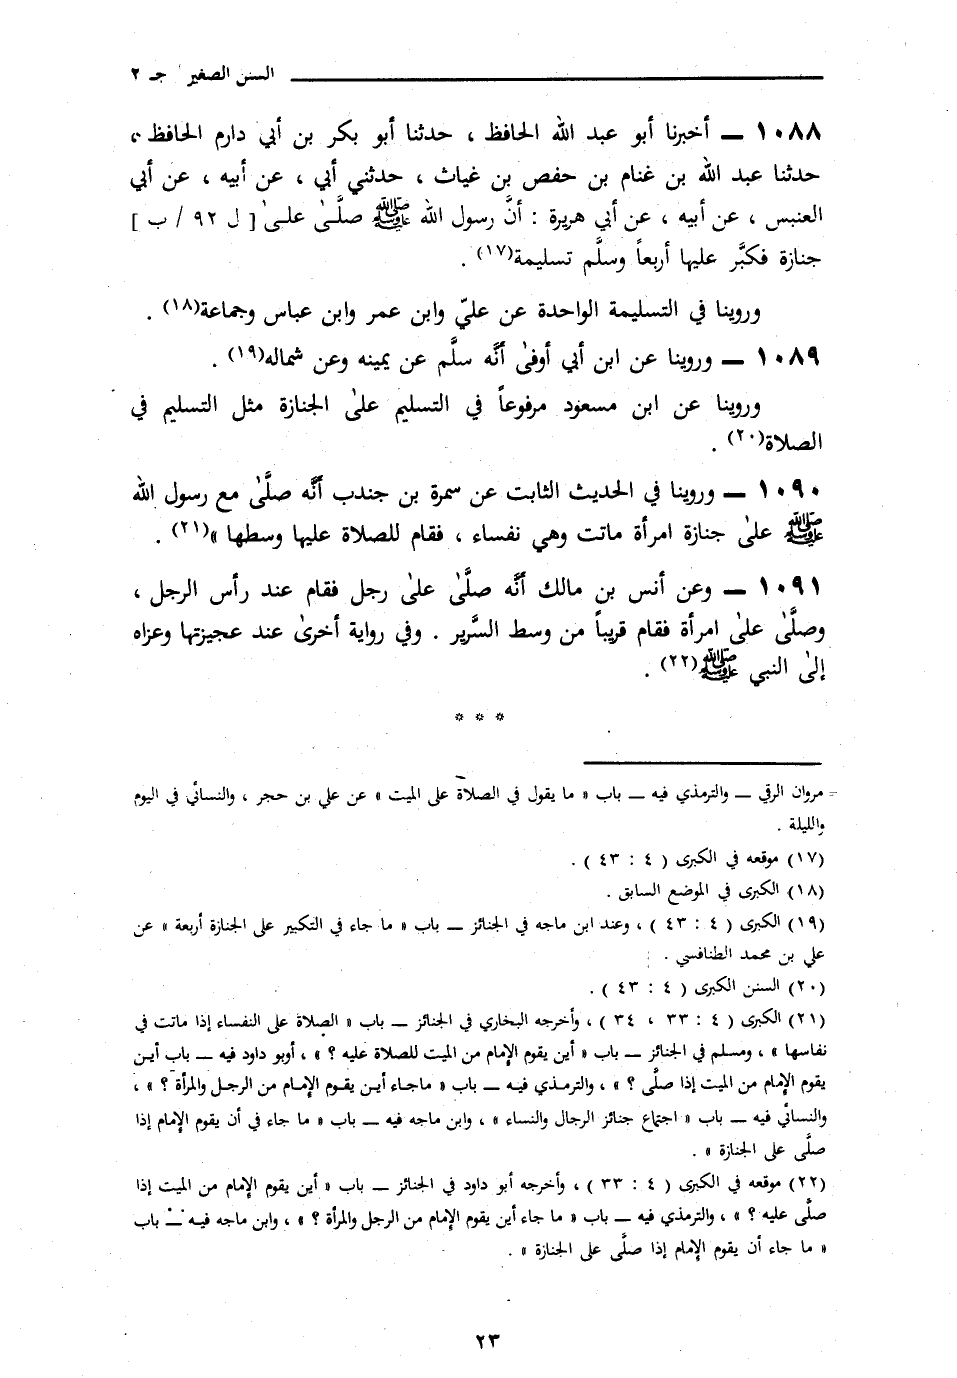 السنن الصغير جـ ٢
١٠٨٨ — أخبرنا أبو عبد الله الحافظ ، حدثنا أبو بكر بن أبي دارم الحافظ ،
حدثنا عبد الله بن غنام بن حفص بن غياث ، حدثني أبي ، عن أبيه ، عن أبي
العنبس ، عن أبيه ، عن أبي هريرة : أنَّ رسول الله ﷺ صلَّىٰ علىٰ [ ل ٩٢ / ب ]
جنازة فكبَّر عليها أربعاً وسلَّم تسليمة(١٧) .
وروينا في التسليمة الواحدة عن عليّ وابن عمر وابن عباس وجماعة(١٨) .
١٠٨٩ — وروينا عن ابن أبي أوفىٰ أنَّه سلَّم عن يمينه وعن شماله(١٩) .
وروينا عن ابن مسعود مرفوعاً في التسليم علىٰ الجنازة مثل التسليم في
الصلاة(٢٠) .
١٠٩٠ — وروينا في الحديث الثابت عن سمرة بن جندب أنَّه صلَّىٰ مع رسول الله
ﷺ علىٰ جنازة امرأة ماتت وهي نفساء ، فقام للصلاة عليها وسطها »(٢١) .
١٠٩١ — وعن أنس بن مالك أنَّه صلَّىٰ علىٰ رجل فقام عند رأس الرجل ،
وصلَّىٰ علىٰ امرأة فقام قريباً من وسط السَّرير . وفي رواية أخرىٰ عند عجيزتها وعزاه
إلىٰ النبي ﷺ(٢٢) .
* * *
= مروان الرقي — والترمذي فيه — باب « ما يقول في الصلاة على الميت » عن علي بن حجر ، والنسائي في اليوم
والليلة .
(١٧) موقعه في الكبرى ( ٤ : ٤٣ ) .
(١٨) الكبرى في الموضع السابق .
(١٩) الكبرى ( ٤ : ٤٣ ) ، وعند ابن ماجه في الجنائز — باب « ما جاء في التكبير على الجنازة أربعة » عن
علي بن محمد الطنافسي .
(٢٠) السنن الكبرى ( ٤ : ٤٣ ) .
(٢١) الكبرى ( ٤ : ٣٣ ، ٣٤ ) ، وأخرجه البخاري في الجنائز — باب « الصلاة على النفساء إذا ماتت في
نفاسها » ، ومسلم في الجنائز — باب « أين يقوم الإمام من الميت للصلاة عليه ؟ » ، أوبو داود فيه — باب أين
يقوم الإمام من الميت إذا صلَّى ؟ » ، والترمذي فيه — باب « ماجاء أين يقوم الإمام من الرجل والمرأة ؟ » ،
والنسائي فيه — باب « اجتماع جنائز الرجال والنساء » ، وابن ماجه فيه — باب « ما جاء في أن يقوم الإمام إذا
صلَّى على الجنازة » .
(٢٢) موقعه في الكبرى ( ٤ : ٣٣ ) ، وأخرجه أبو داود في الجنائز — باب « أين يقوم الإمام من الميت إذا
صلَّى عليه ؟ » ، والترمذي فيه — باب « ما جاء أين يقوم الإمام من الرجل والمرأة ؟ » ، وابن ماجه فيه — باب
« ما جاء أن يقوم الإمام إذا صلَّى على الجنازة » .
٢٣